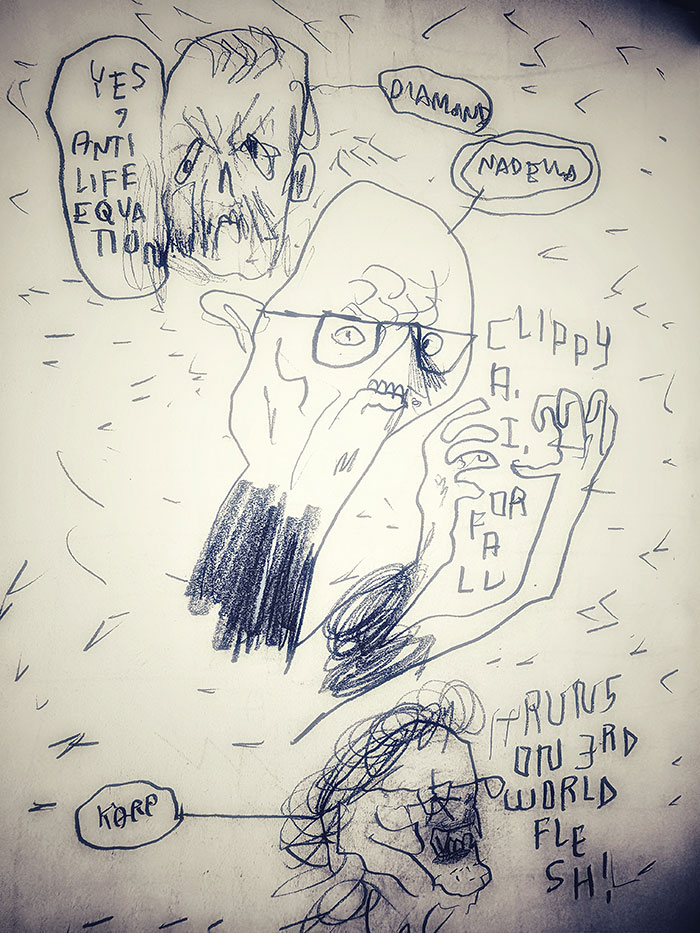 YES
,
ANTI
LIFE
EQUA
TION
DIAMOND
NADELLA
CLIPPY
A.
I.
FOR
ALL
IT RUNS
ON 3RD
WORLD
FLE
SH!
KARP